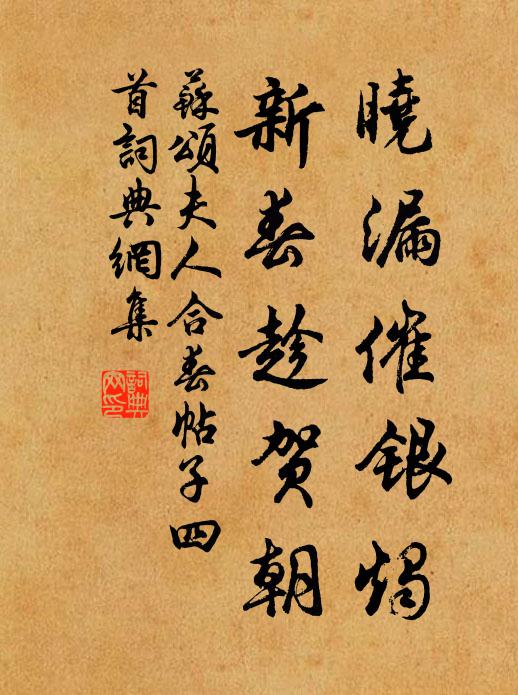 曉漏催銀燭
新春趁賀朝
蘇頌夫人合春帖子四
首詞典網集
詞典網印